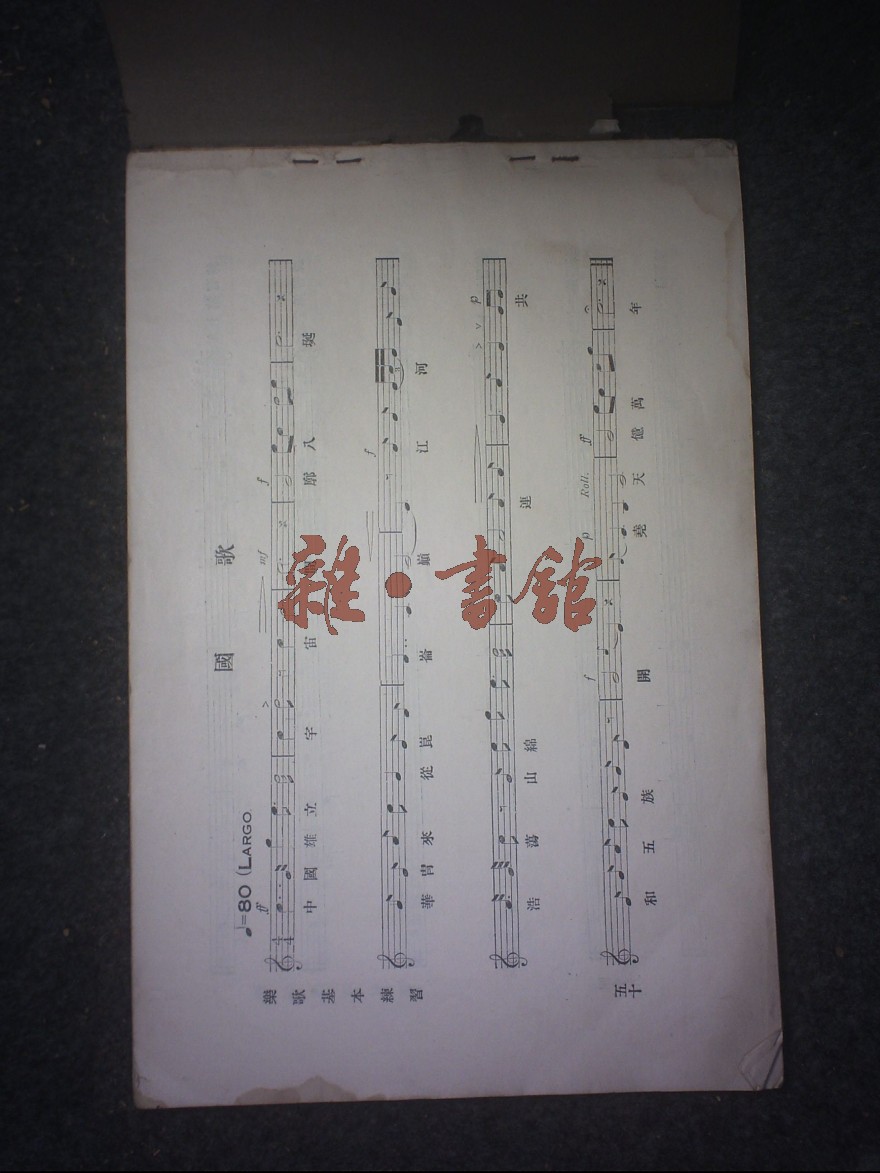 國歌
♩=80 (LARGO.
ff mf f
中國雄立宇宙 廓八埏
f
華胄來從崑崙巔 江河
p
浩蕩山綿連 共
f p Rall. ff
和五族開堯天 億萬年
樂歌基本練習
五十
雜·書館